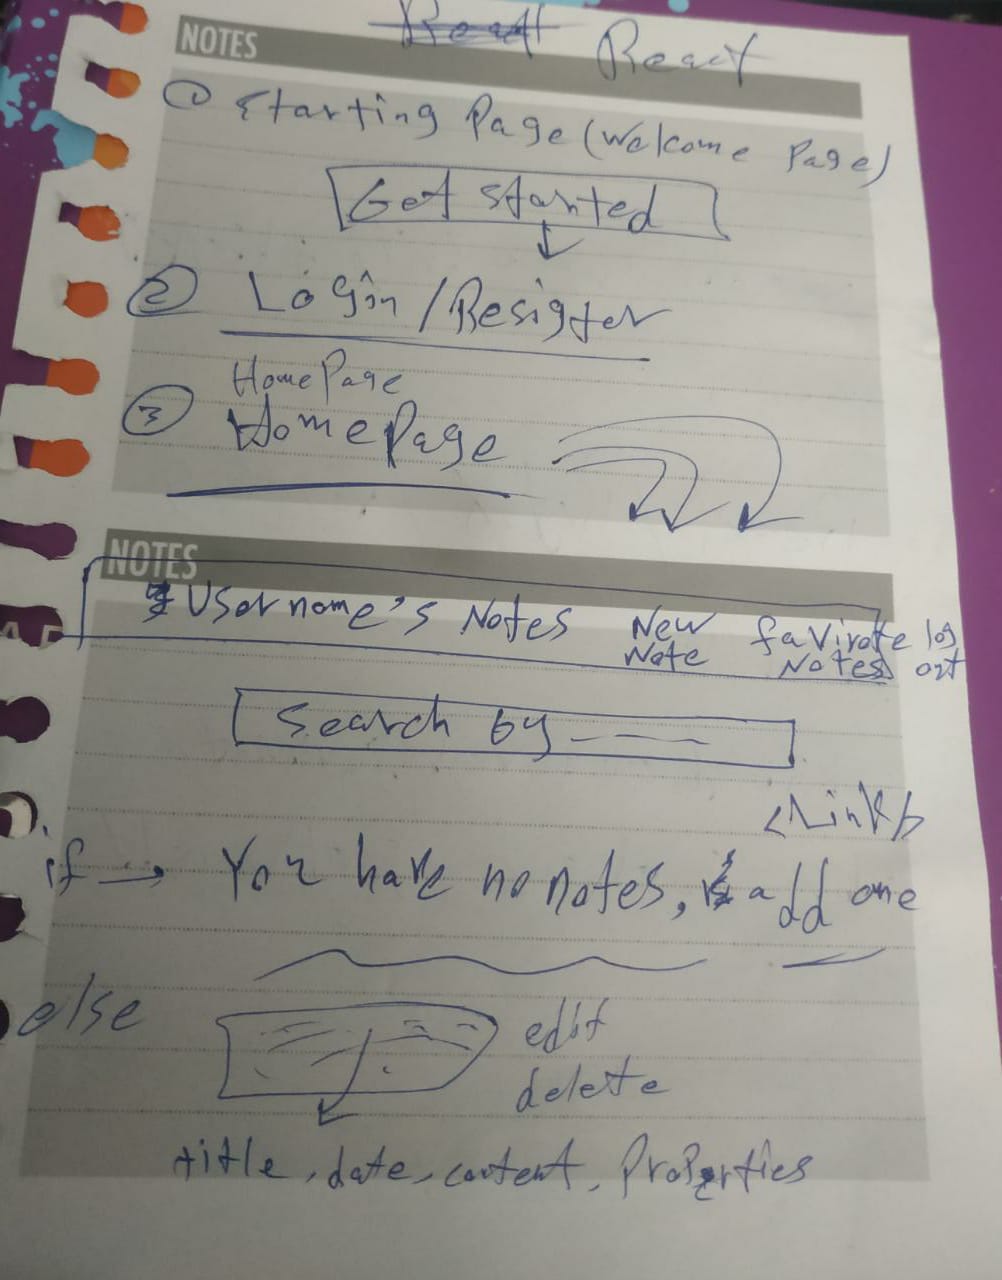 NOTES
React React
① Starting Page (Welcome Page)
Get Started
② Login / Resigter
Home Page
③ Home Page
NOTES
Username's Notes New Note favirote Notes log out
Search by ———
<Link/>
if → You have no notes, add one
else
edit
delete
title, date, content, Properties